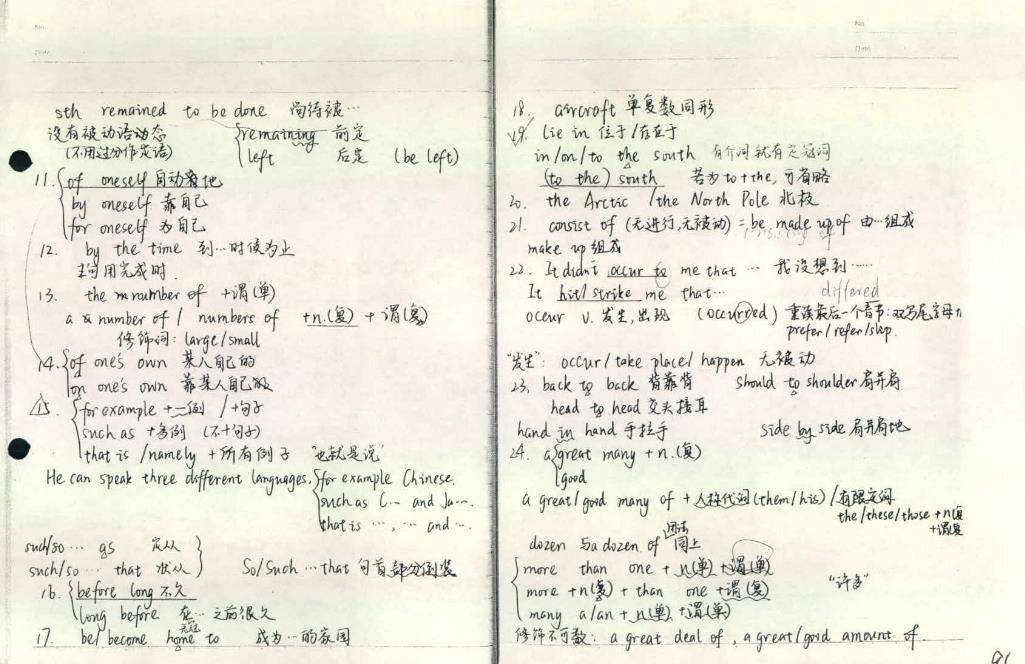 No.
Date
sth remained to be done 尚待被…
没有被动语态
(不用过分作定语)
{remaining 前定
left 后定 (be left)
11. {of oneself 自动地
by oneself 靠自己
for oneself 为自己
12. by the time 到…时候为止
均用完成时.
13. the number of +谓(单)
a number of / numbers of +n.(复) + 谓(复)
修饰词: large/small
14. {of one's own 某人自己的
on one's own 靠某人自己的
15. {for example +一例 / +句子
such as +多例 (不+句子)
that is /namely +所有例子 "也就是说"
He can speak three different languages, {for example Chinese.
such as C… and Ja….
that is …, … and ….
such/so … as 定从
such/so … that 状从
So/Such … that 句首部分倒装
16. {before long 不久
long before 在…之前很久
17. be/ become home to 成为…的家园
无冠
No.
Date
18. aircraft 单复数同形
19. lie in 位于/在于
in/on/to the south 有介词就有定冠词
(to the) south 若为to+the, 可省略
20. the Arctic /the North Pole 北极
21. consist of (无进行,无被动) = be made up of 由…组成
consisting of
make up 组成
22. It didn't occur to me that … 我没想到……
It hit/strike me that…
differed
occur v. 发生,出现 (occurred) 重读最后一个音节:双写尾字母
prefer/refer/slip.
"发生": occur/ take place/ happen 无被动
23. back to back 背靠背 should to shoulder 肩并肩
head to head 交头接耳
hand in hand 手拉手 side by side 肩并肩地
24. a {great many +n.(复)
good
a great/good many of + 人称代词(them/his) / 有限定词
the/these/those +n(复)
+谓复
dozen 与a dozen of 同上
用法
{more than one + n(单) +谓(单)
more +n(复) + than one +谓(复) "许多"
many a/an + n(单) +谓(单)
修饰不可数: a great deal of, a great/good amount of.